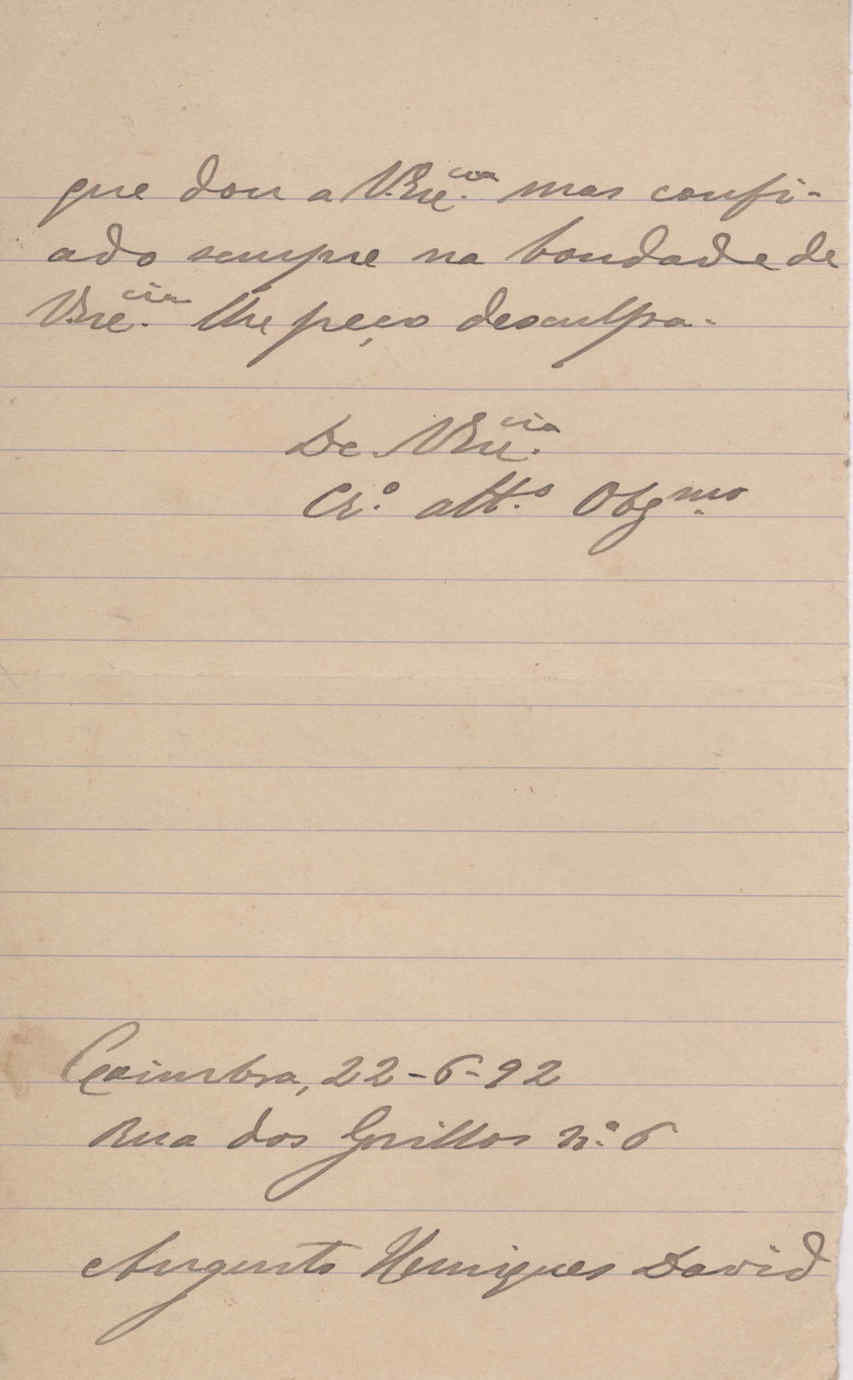 que dou a V.Exe.cia mas confi-
ado sempre na bondade de
V.Exe.cia lhe peço desculpa.
De V.Exe.cia
Cr.º att.º Obgmo
Coimbra, 22-6-92
Rua dos Grillos n.º 6
Augusto Henriques David